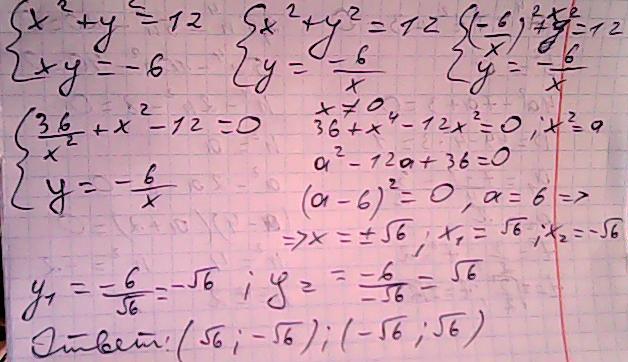 {x² + y² = 12 {x² + y² = 12 {(-6/x)² + x² = 12
{xy = -6 {y = -6/x {y = -6/x
{36/x² + x² - 12 = 0
{y = -6/x
x ≠ 0
36 + x⁴ - 12x² = 0 ; x² = a
a² - 12a + 36 = 0
(a - 6)² = 0 , a = 6 =>
=> x = ±√6 ; x₁ = √6 ; x₂ = -√6
y₁ = -6/√6 = -√6 ; y₂ = -6/-√6 = √6
Ответ: (√6 ; -√6) ; (-√6 ; √6)